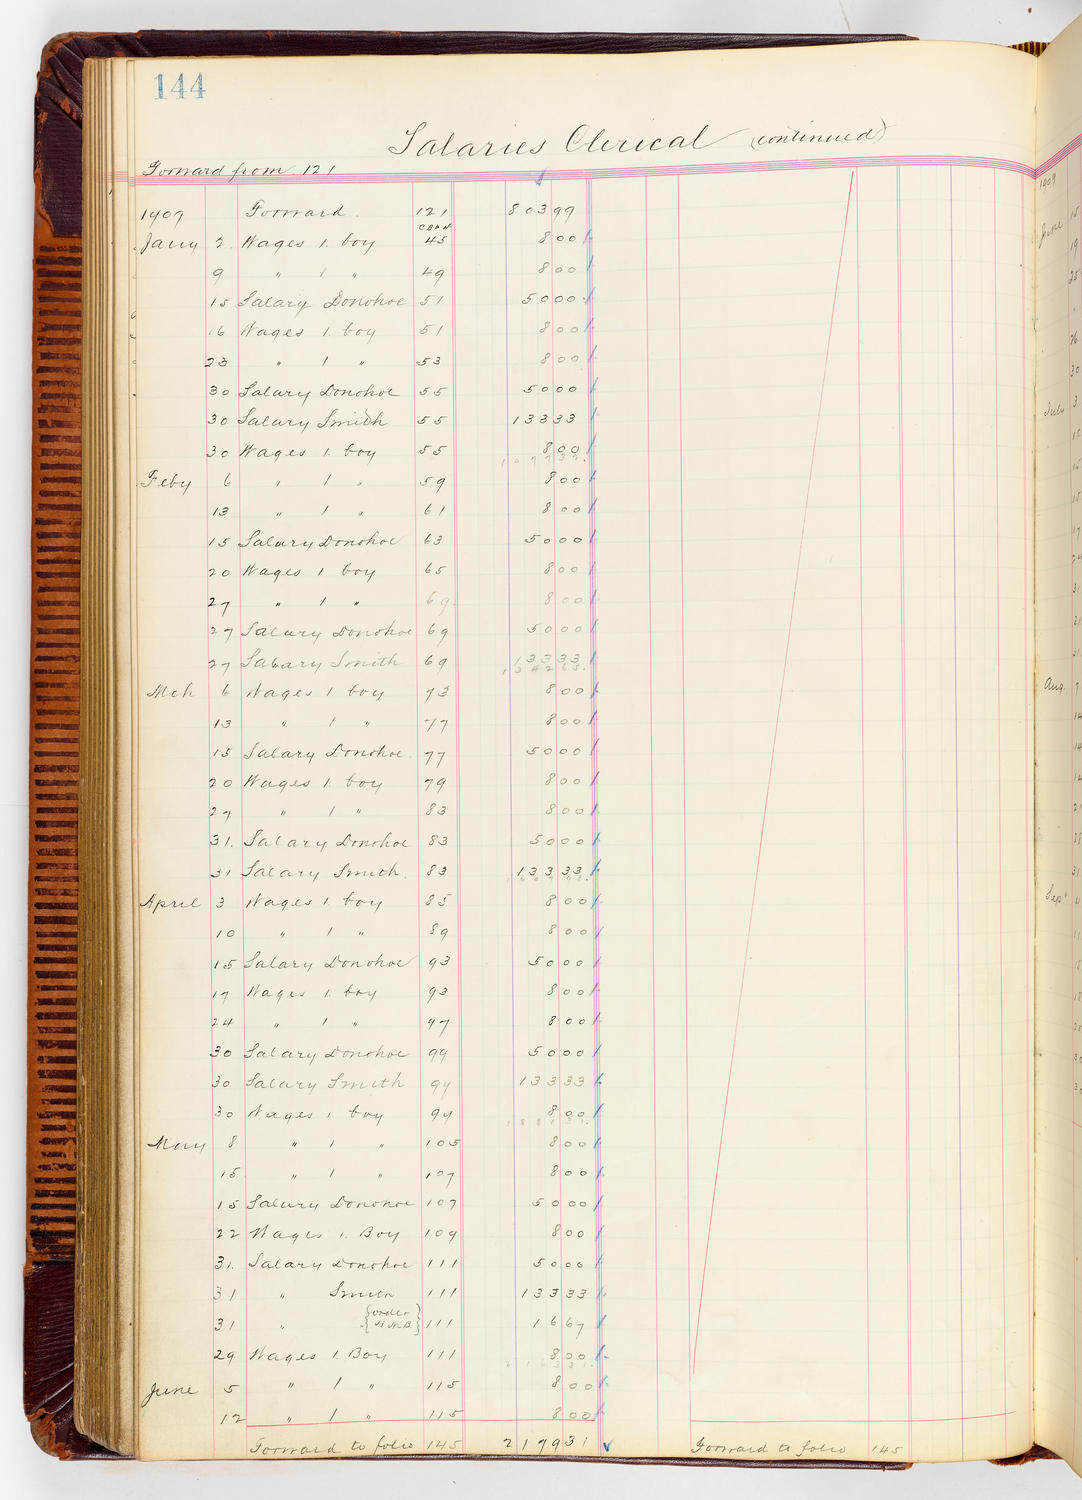 144
Salaries Clerical (continued)
Forward from 121
1907 Forward. 121 803 99
CB No 4
Jany 2. Wages 1. boy 45 8 00
9 " 1 " 49 8 00
15 Salary Donohoe 51 50 00
16 Wages 1. boy 51 8 00
23 " 1 " 53 8 00
30 Salary Donohoe 55 50 00
30 Salary Smith 55 133 33
30 Wages 1. boy 55 8 00
1077 32.
Feby 6 " 1 " 59 8 00
13 " 1 " 61 8 00
15 Salary Donohoe 63 50 00
20 Wages 1 boy 65 8 00
27 " 1 " 69. 8 00
27 Salary Donohoe 69 50 00
27 Salary Smith 69 133 33
1342 65.
Mch 6 Wages 1 boy 73 8 00
13 " 1 " 77 8 00
15 Salary Donohoe. 77 50 00
20 Wages 1. boy 79 8 00
27 " 1 " 83 8 00
31. Salary Donohoe 83 50 00
31 Salary Smith. 83 133 33
April 3 Wages 1. boy 85 8 00
10 " 1 " 89 8 00
15 Salary Donohoe 93 50 00
17 Wages 1. boy 93 8 00
24 " 1 " 97 8 00
30 Salary Donohoe 99 50 00
30 Salary Smith 99 133 33
30 Wages 1 boy 99 8 00
May 8 " 1 " 105 8 00
15 " 1 " 107 8 00
15 Salary Donohoe 107 50 00
22 Wages 1. Boy 109 8 00
31. Salary Donohoe 111 50 00
31 " Smith 111 133 33
31 " {order} 111 16 67
29 Wages 1. Boy 111 8 00
June 5 " 1 " 115 8 00
12 " 1 " 115 8 00
Forward to folio 145 2179 31
Forward to folio 145
1909
June
July
Aug.
Sept